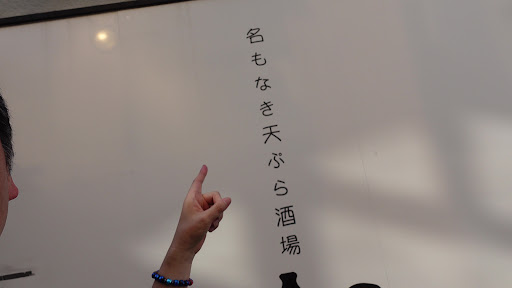 名もなき天ぷら酒場